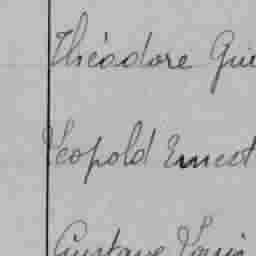 Théodore Gui
Léopold Ernest
Gustave Louis